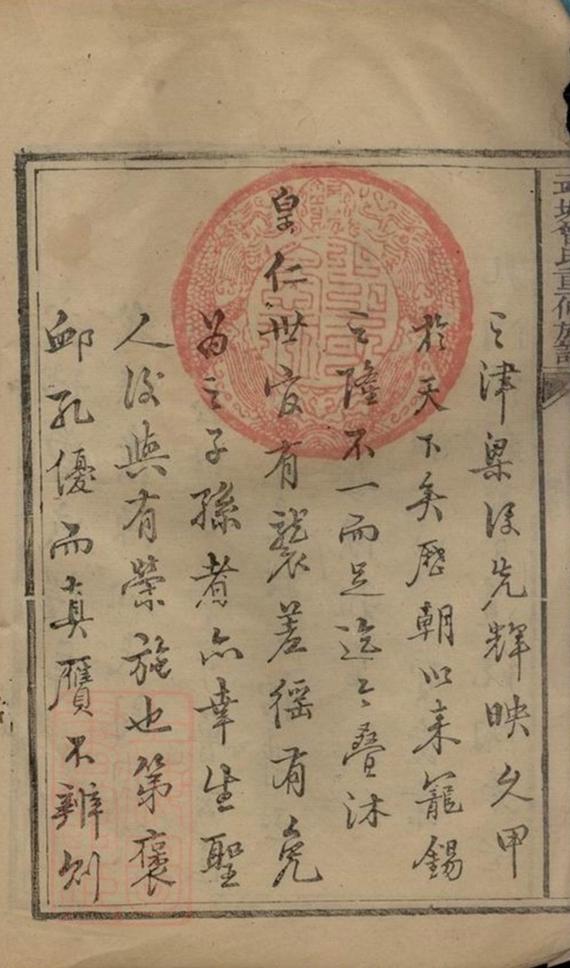 武城曾氏重修族譜
之津梁後先輝映久甲
於天下矣歷朝以來寵錫
之隆不一而足迄今疊沐
皇仁世官有襲差徭有免
為之子孫者亦幸生聖
人後與有榮施也第褒
卹孔優而真贗不辨則